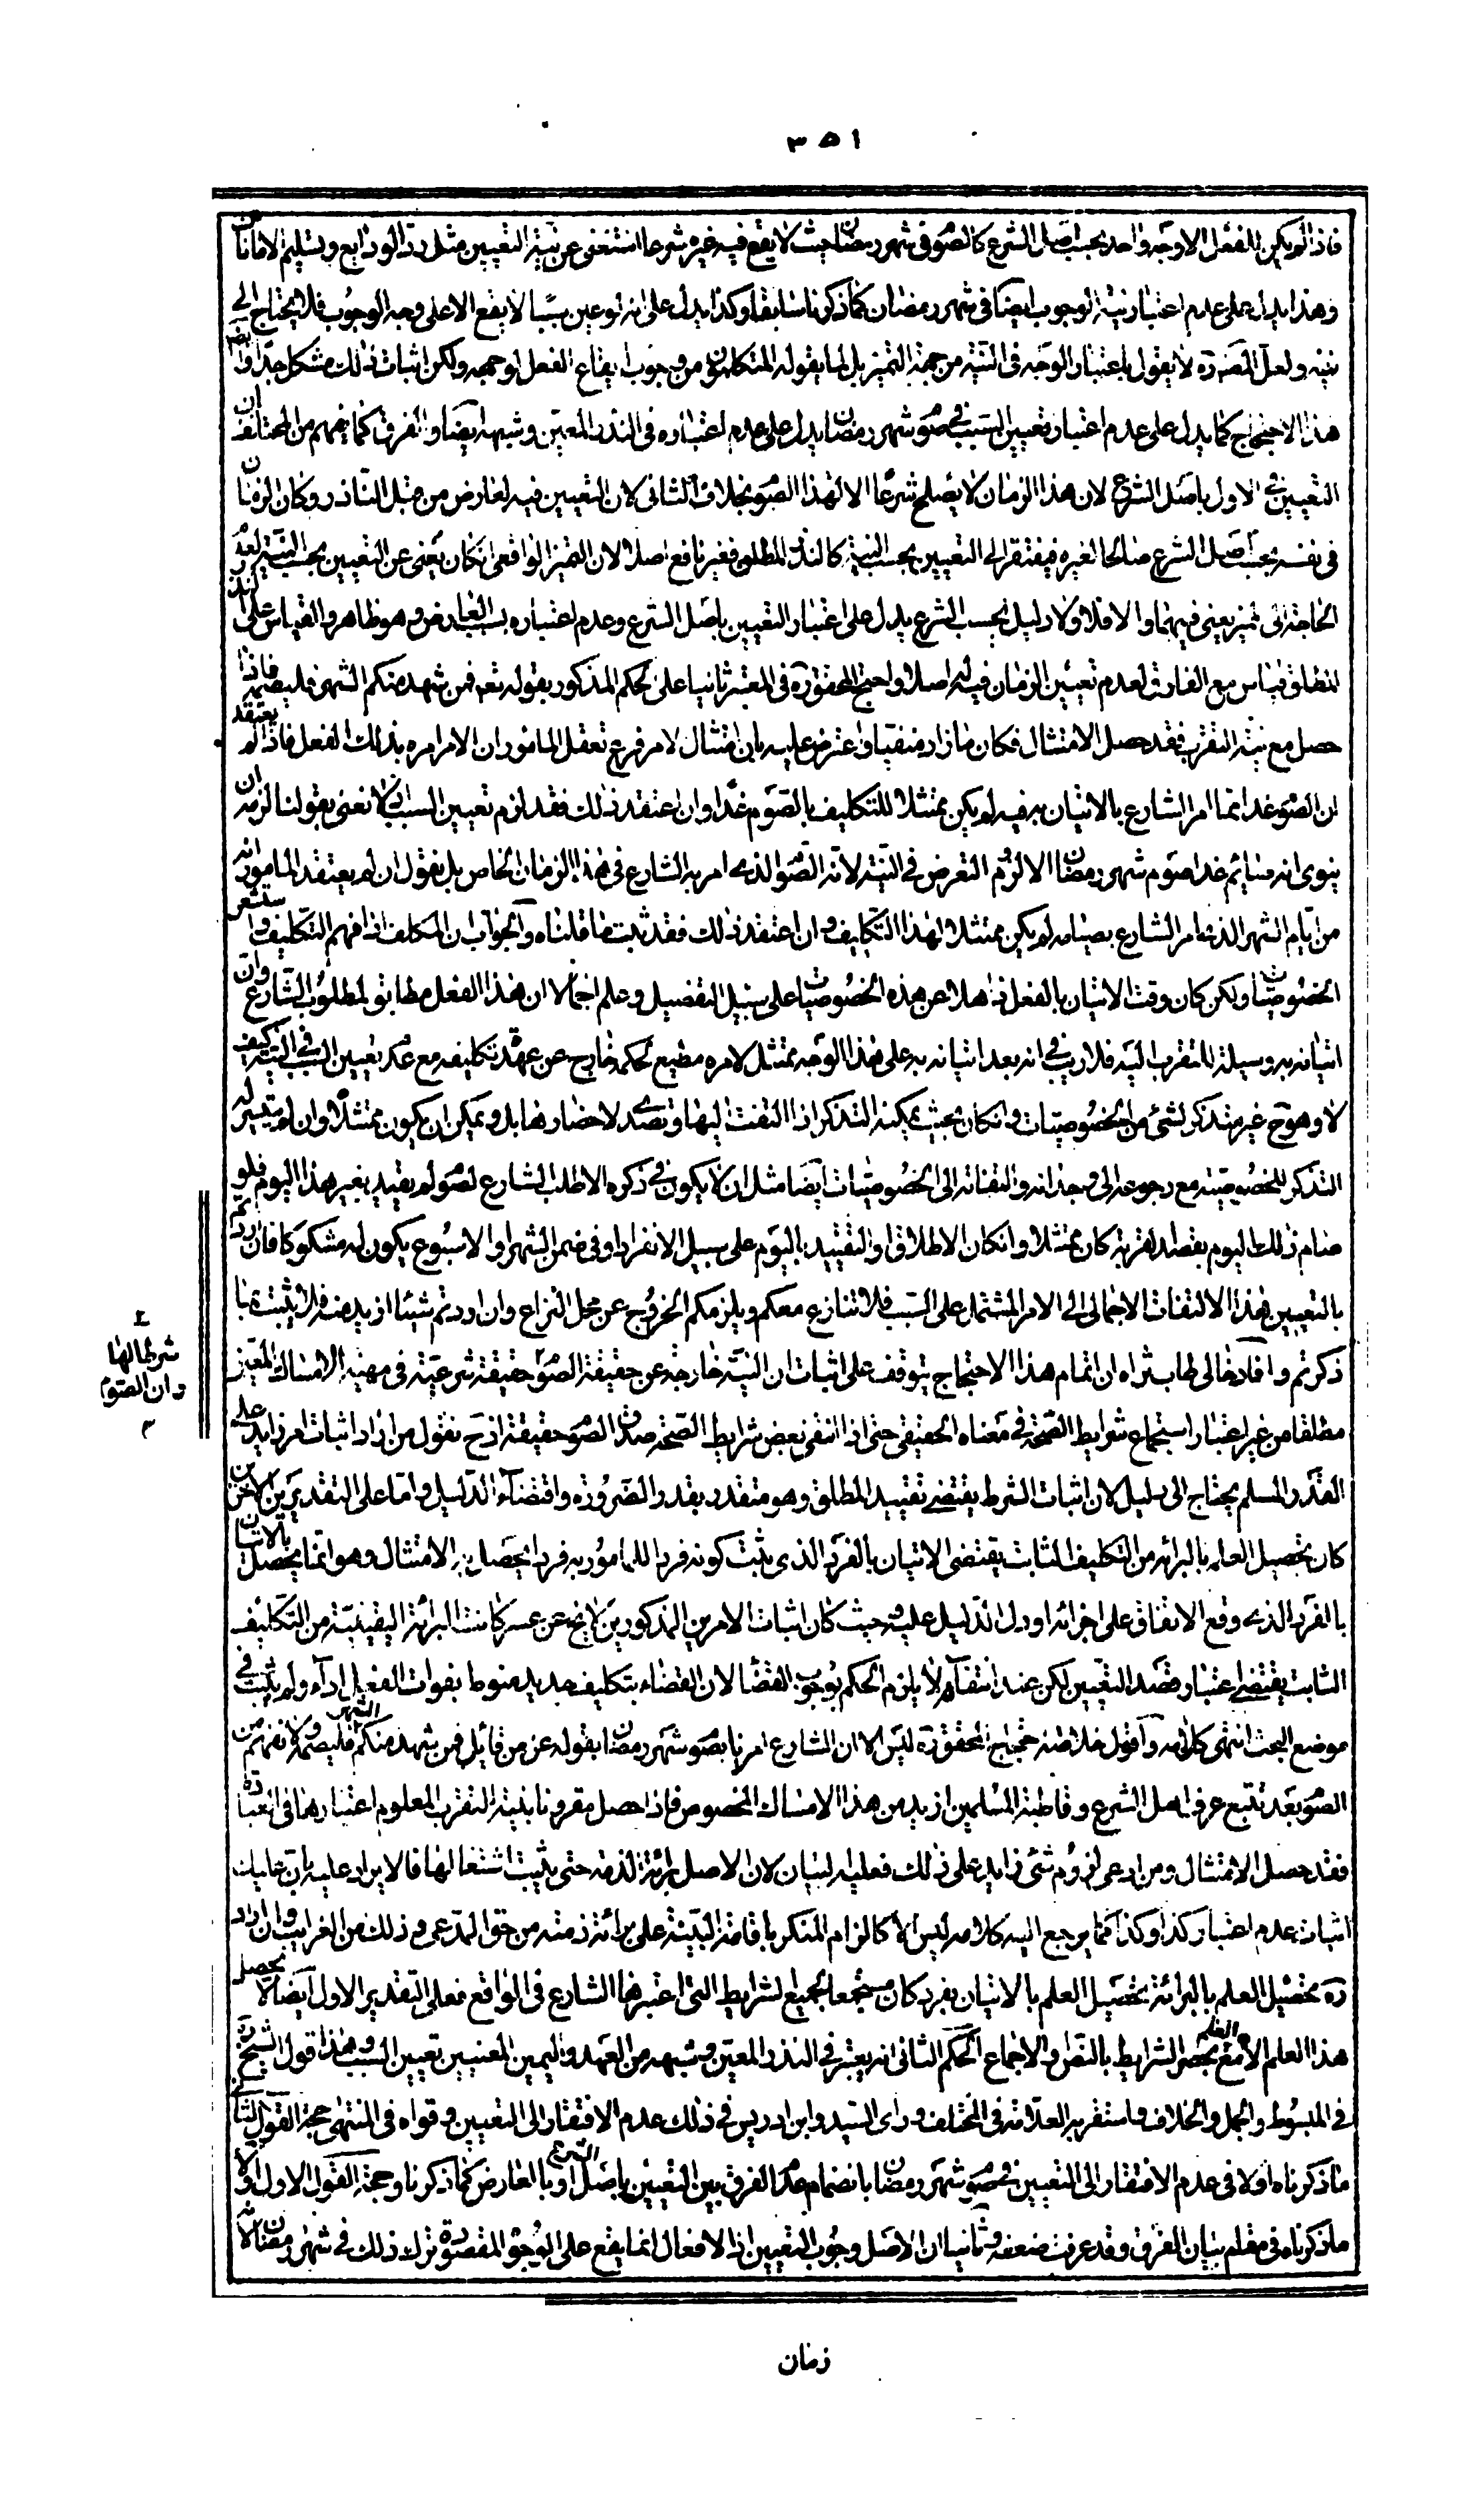 ٣٥١
فاذا لم يكن للفعل الا وجه واحد بحسب اصل الشرع كالصوم في شهر رمضان حيث لا يقع فيه غيره شرعا استغنى عن نية التعيين مثل رد الودايع وتسليم الامانات
وهذا يدل على عدم اعتبار نية الوجوب ايضا في شهر رمضان كما ذكرنا سابقا وكذا يدل على انه لو عين سببا لا يقع الا على وجه الوجوب فلا يحتاج الى
نيته ولعل المصنف ره لا يقول باعتبار الوجه في النية من جهة التميز بل لما يقوله المتكلمون من وجوب ايقاع الفعل لوجهه ولكن اثبات ذلك مشكل جدا وايضا
هذا الاحتجاج كما يدل على عدم اعتبار تعيين السبب في صوم شهر رمضان يدل على عدم اعتباره في النذر المعين وشبهه ايضا والفرق كما يفهم من المختلف ان
التعيين في الاول باصل الشرع لان هذا الزمان لا يصلح شرعا الا لهذا الصوم بخلاف الثاني لان التعيين فيه لعارض من قبل الناذر وكان الزمان
في نفسه بحسب اصل الشرع صالحا لغيره فيفتقر الى التعيين بحسب النية كالنذر المطلق فغير نافع اصلا لان التميز الواقعي ان كان يغني عن التعيين بحسب النية لعدم
الحاجة الى تميز يغني فيهما والا فلا ولا دليل بحسب الشرع يدل على اعتبار التعيين باصل الشرع وعدم اعتباره بسبب العارض وهو ظاهر والقياس على النذر
المطلق قياس مع الفارق لعدم تعيين الزمان فيه اصلا واحتج المحقق ره في المعتبر ثانيا على الحكم المذكور بقوله تعالى فمن شهد منكم الشهر فليصمه فاذا
حصل مع نية التقرب فقد حصل الامتثال فكان ما زاد منفيا واعترض عليه بان امتثال الامر فرع تعقل المامور ان الامر امره بذلك الفعل فاذا لم يعتقد
ان الصوم غدا مما امر الشارع بالاتيان به فيه لم يكن ممتثلا للتكليف بالصوم غدا وان اعتقد ذلك فقد لزم تعيين السبب اذ لا نعني بقولنا لزم ان
ينوي انه صائم غدا صوم شهر رمضان الا لزوم التعرض في النية لانه الصوم الذي امر به الشارع في هذا الزمان الخاص بل نقول ان لم يعتقد المامور انه
من ايام الشهر الذي امر الشارع بصيامه لم يكن ممتثلا لهذا التكليف وان اعتقد ذلك فقد ثبت ما قلناه والجواب ان المكلف اذا فهم التكليف واستشعر
الخصوصيات ولكن كان وقت الاتيان بالفعل ذاهلا عن هذه الخصوصيات على سبيل التفصيل وعلم اجمالا ان هذا الفعل مطابق لمطلوب الشارع وان
اتيانه به وسيلة للتقرب اليه فلا ريب في انه بعد اتيانه به على هذا الوجه ممتثل لامره مطيع لحكمه خارج عن عهدة تكليفه مع عدم تعيين السبب في النية كيف
لا وهو ح غير متذكر لشئ من الخصوصيات وان كان بحيث يمكنه التذكر اذا التفت اليها وتصدى لاحضارها بل ويمكن ان يكون ممتثلا وان لم يتيسر له
التذكر للخصوصية مع رجوعه الى وجدانه والتفاته الى الخصوصيات ايضا مثل ان لا يكون في ذكره الا طلب الشارع لصوم لم يقيد بغير هذا اليوم فلو
صام ذلك اليوم بقصد القربة كان ممتثلا وان كان الاطلاق او التقييد باليوم على سبيل الانفراد او في ضمن الشهر او الاسبوع يكون له مشكوكا فان اردتم
بالتعيين هذا الالتفات الاجمالي الى الامر المشتمل على السبب فلا تنازع معكم ويلزمكم الخروج عن محل النزاع وان اردتم شيئا ازيد منه فلا يثبت بما
ذكرتم وافاد خالي طاب ثراه ان اتمام هذا الاحتجاج يتوقف على اثبات ان النية خارجة عن حقيقة الصوم حقيقة شرعية في مهية الامساك المعين
مطلقا من غير اعتبار استجماع شرايط الصحة في معناه الحقيقي حتى اذا انتفى بعض شرايط الصحة صدق الصوم حقيقة اذ ح نقول من اراد اثبات امر زايد على
القدر المسلم يحتاج الى دليل لان اثبات الشرط يقتضي تقييد المطلق وهو متقدر بقدر الضرورة واقتضاء الدليل واما على التقديرين الاخرين
كان تحصيل العلم بالبرائة من التكليف الثابت يقتضي الاتيان بالفرد الذي يثبت كونه فردا للمامور به فردا يحصل به الامتثال وهو انما يحصل بالاتيان
بالفرد الذي وقع الاتفاق على اجزائه او دل الدليل عليه وحيث كان اثبات الامرين المذكورين لا يخ عن عسر كانت البرائة اليقينية من التكليف
الثابت يقتضي اعتبار قصد التعيين لكن عند انتفائه لا يلزم الحكم بوجوب القضاء لان القضاء بتكليف جديد منوط بفوات الفعل اداء ولم يثبت في
موضع البحث انتهى كلامه واقول خلاصة احتجاج المحقق ره ليس الا ان الشارع امرنا بصوم شهر رمضان بقوله عز من قائل فمن شهد منكم الشهر فليصمه ولا نفهم من
الصوم بعد تتبع عرف اهل الشرع وقاطبة المسلمين ازيد من هذا الامساك المخصوص فاذا حصل مقرونا بنية التقرب المعلوم اعتبارهما في العبادة
فقد حصل الامتثال ومن ادعى لزوم شئ زايد على ذلك فعليه البيان لان الاصل برائة الذمة حتى يثبت اشتغالها فالايراد عليه بان عليك
اثبات عدم اعتبار كذا وكذا كما يرجع اليه كلامه ليس الا كالزام المنكر باقامة البينة على برائة ذمته من حق المدعي وذلك من الغرايب وان اراد
ره تحصيل العلم بالبرائة بتحصيل العلم بالاتيان بفرد كان مستجمعا لجميع الشرايط التي اعتبرها الشارع في الواقع فعلى التقدير الاول ايضا لا يحصل
هذا العلم الا مع العلم بحصر الشرايط بالنص او الاجماع الحكم الثاني انه يعتبر في النذر المعين وشبهه من العهد واليمين المعينين تعيين السبب وهذا قول الشيخ ره
في المبسوط والجمل والخلاف واستقربه العلامة في المختلف وراى السيد وابن ادريس في ذلك عدم الافتقار الى التعيين وقواه في المنتهى حجة القول الثاني
ما ذكرناه اولا في عدم الافتقار الى التعيين في صوم شهر رمضان بانضمام عدم الفرق بين التعيين باصل الشرع او بالعارض كما ذكرنا وحجة القول الاول اولا
ما ذكرناه في مقام بيان الفرق وقد عرفت ضعفه وثانيا ان الاصل وجوب التعيين اذ الافعال انما يقع على الوجوه المقصودة ترك ذلك في شهر رمضان لانه
شرطا لها
وان الصوم
زمان